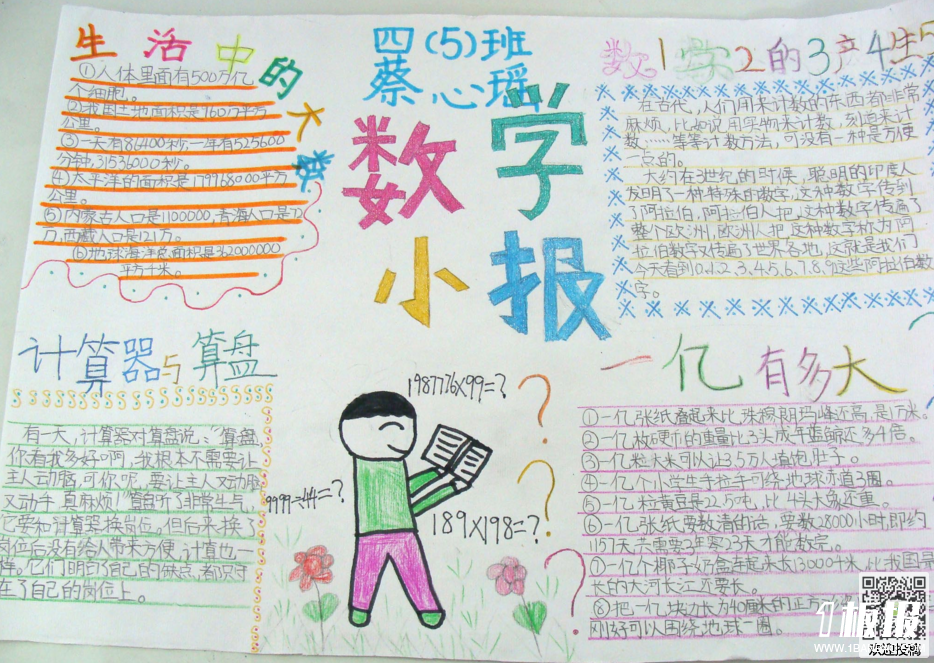 生活中的大数
①人体里面有500万亿
个细胞。
②我国土地面积是960万平方
公里。
③一天有86400秒,一年有525600
分钟,31536000秒。
④太平洋的面积是179968000平方
公里。
⑤内蒙古人口是1100000,青海人口是
万,西藏人口是121万。
⑥地球海洋总面积是362000000
平方千米。
四(5)班
蔡心瑶
数学
小报
数1学2的3产4生5
在古代,人们用来计数的东西都非常
麻烦,比如说用实物来计数,刻道来计
数,……等等计数方法,可没有一种是方便
一点的。
大约在3世纪的时候,聪明的印度人
发明了一种特殊的数字,这种数字传到
了阿拉伯,阿拉伯人把这种数字传遍了
整个欧洲,欧洲人把这种数字称为阿
拉伯数字又传遍了世界各地,这就是我们
今天看到0、1、2、3、4、5、6、7、8、9这些阿拉伯数
字。
计算器与算盘
有一天,计算器对算盘说:“算盘,
你看我多好啊,我根本不需要让
主人动脑,可你呢,要让主人又动脑
又动手,真麻烦!”算盘听了非常生气,
它要和计算器换岗位。但后来,换了
岗位后没有给人带来方便,计算也一
样。它们明白了自己的缺点,都只守
在了自己的岗位上。
1987776×99=?
9999÷44=?
189×198=?
一亿有多大
①一亿张纸叠起来比珠穆朗玛峰还高,是1万米。
②一亿枚硬币的重量比3头成年蓝鲸还多4倍。
③一亿粒大米可以让3.5万人填饱肚子。
④一亿个小学生手拉手可绕地球赤道3圈。
⑤一亿粒黄豆是22.5吨,比4头大象还重。
⑥一亿张纸要数清的话,要数28000小时,即约
1157天,共需要3年零23天才能数完。
⑦一亿个椰子奶盒连起来长13000千米,比我国最
长的大河长江还要长。
⑧把一亿块边长为40厘米的正方
刚好可以围绕地球一圈。
1板报
WWW.1B
欢迎投稿